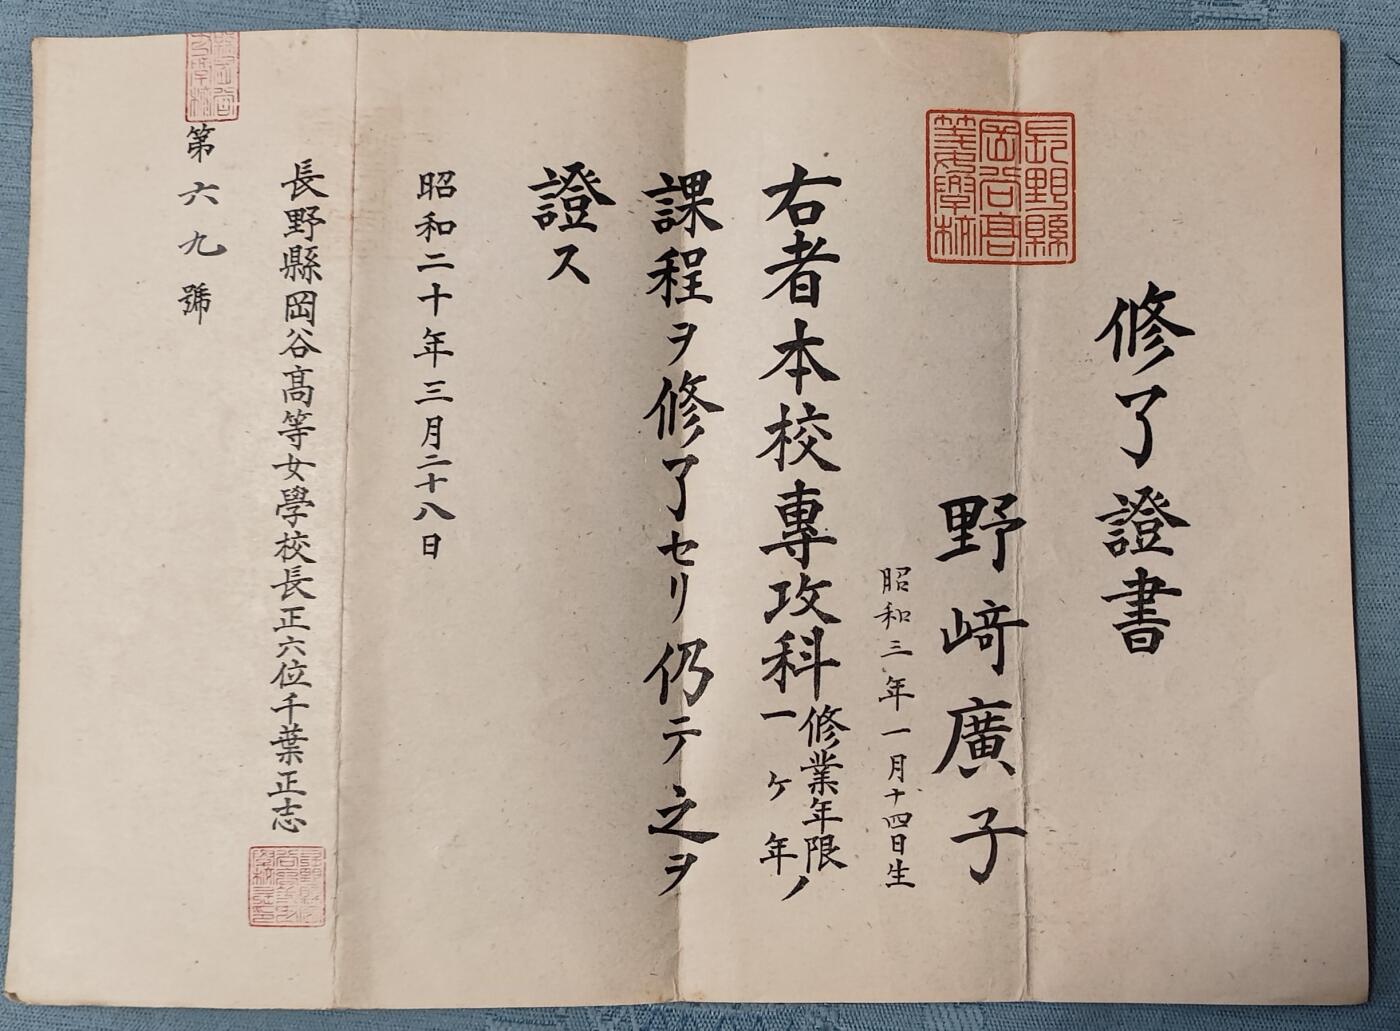 修了證書
長野縣
岡谷髙
等女學校
野﨑廣子
昭和三年一月十四日生
右者本校專攻科修業年限ノ一ケ年
課程ヲ修了セリ仍テ之ヲ
證ス
昭和二十年三月二十八日
長野縣岡谷髙等女學校長正六位千葉正志
第六九號